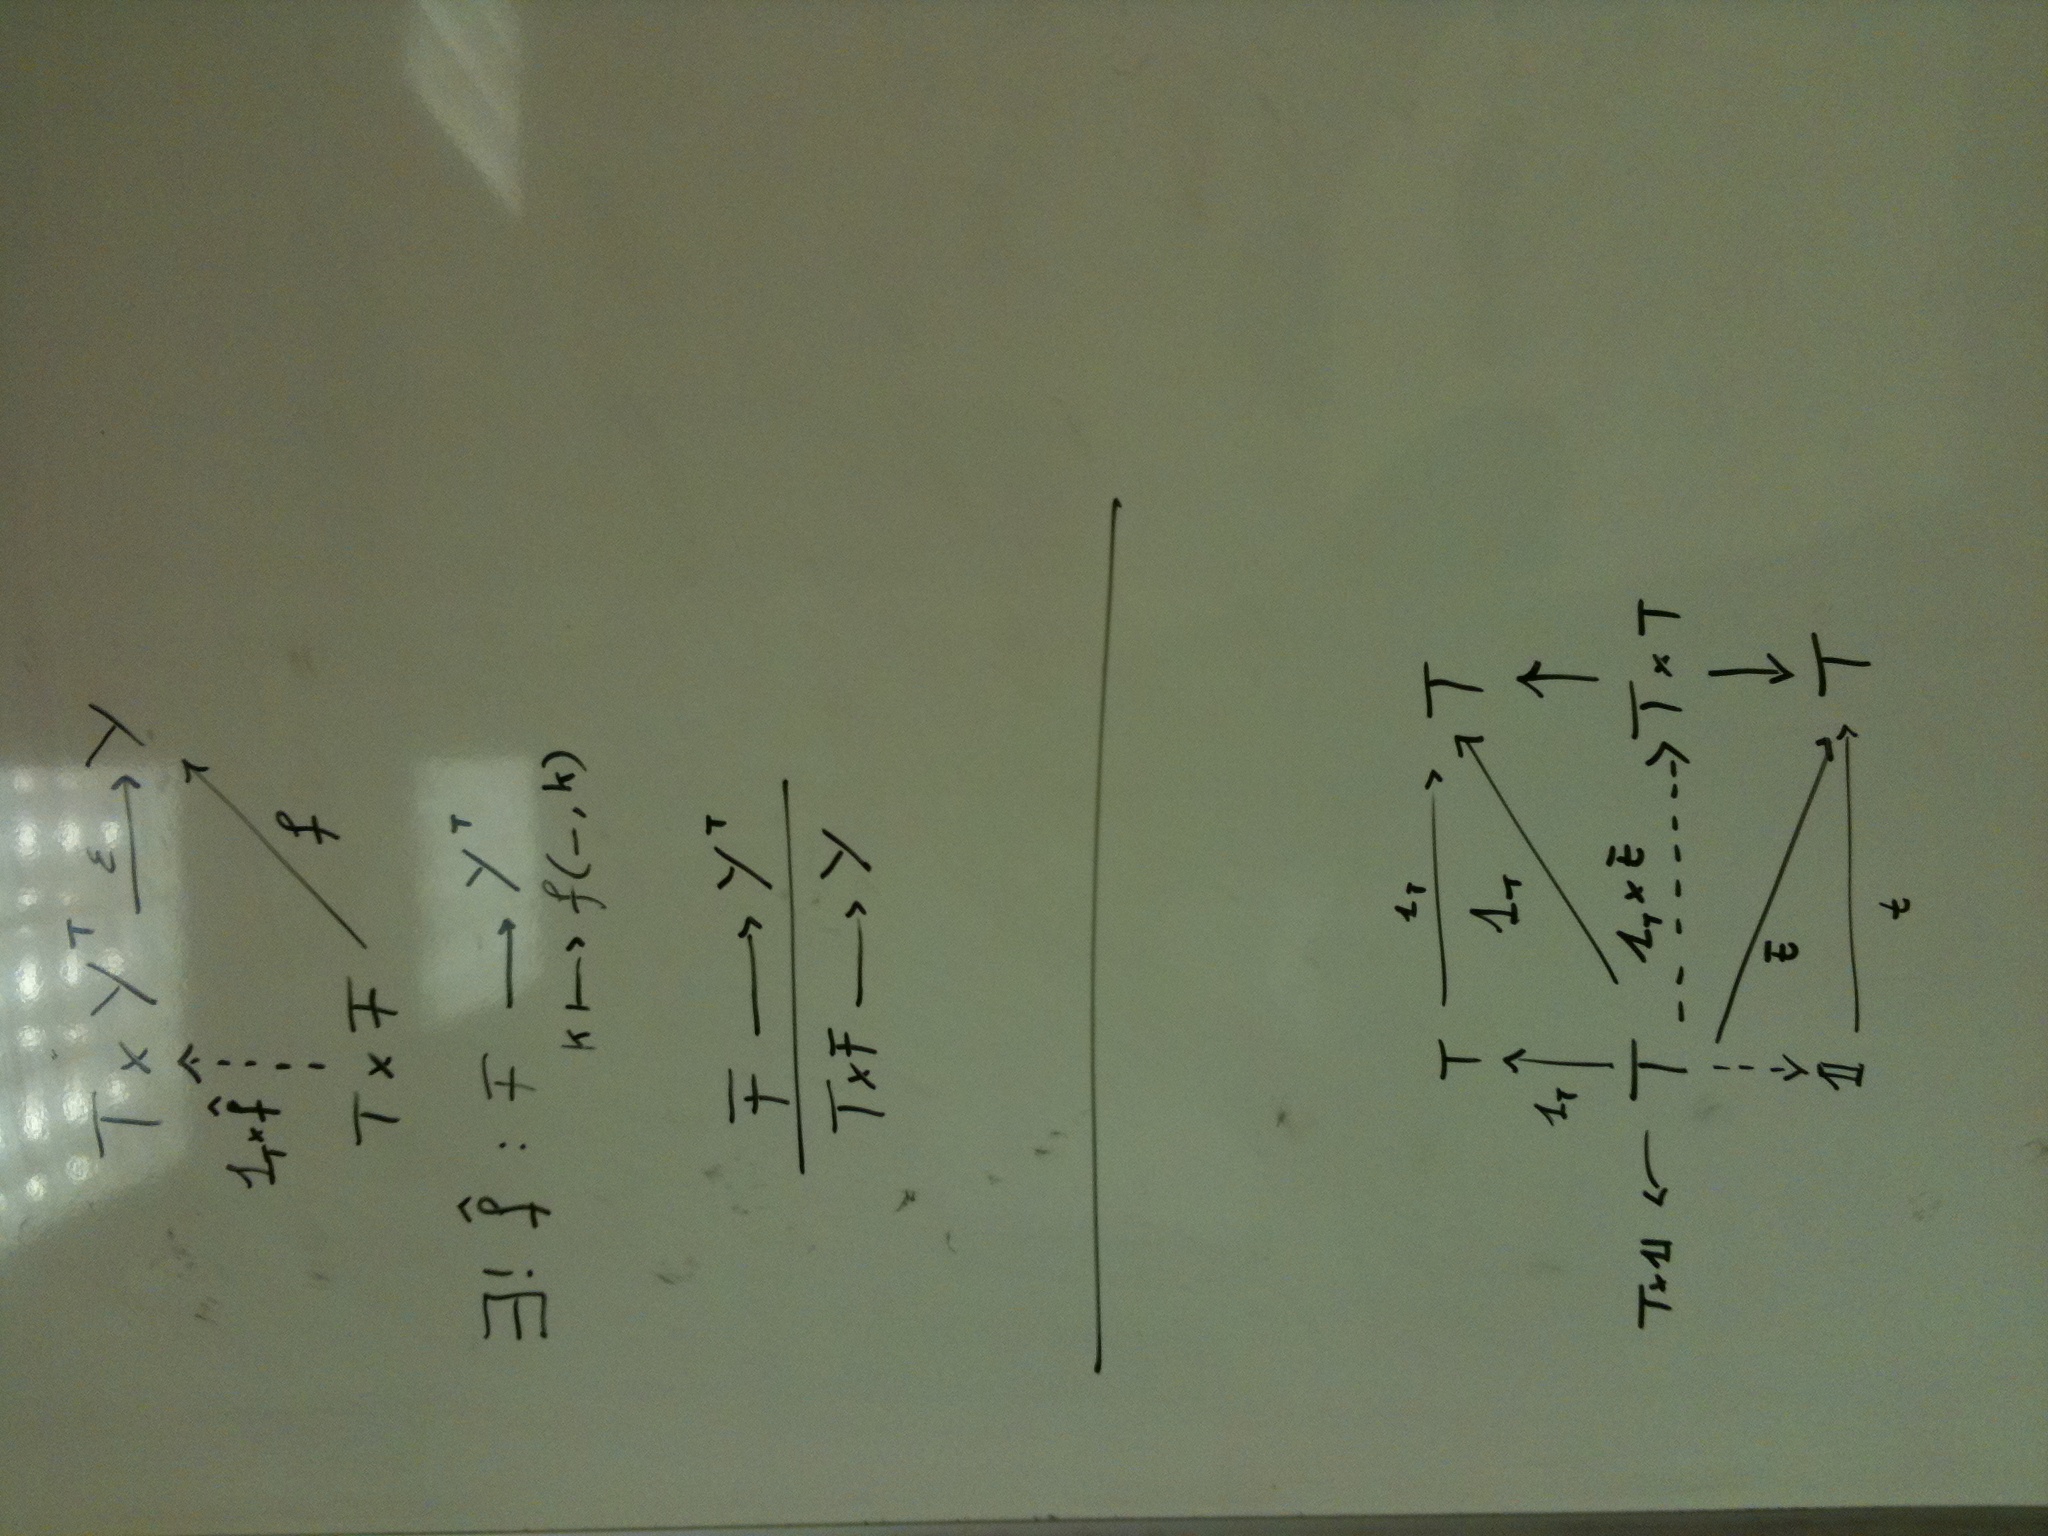 T × Y^T —ε→ Y
1_T × f̂
f
T × F
∃! f̂ : F → Y^T
k ↦ f(–, k)
F → Y^T
T×F → Y
T —1_T→ T
1_T
1_T
T×𝟙 ← T 1_T × t̄ ⇢ T × T
t̄
𝟙 → T
t